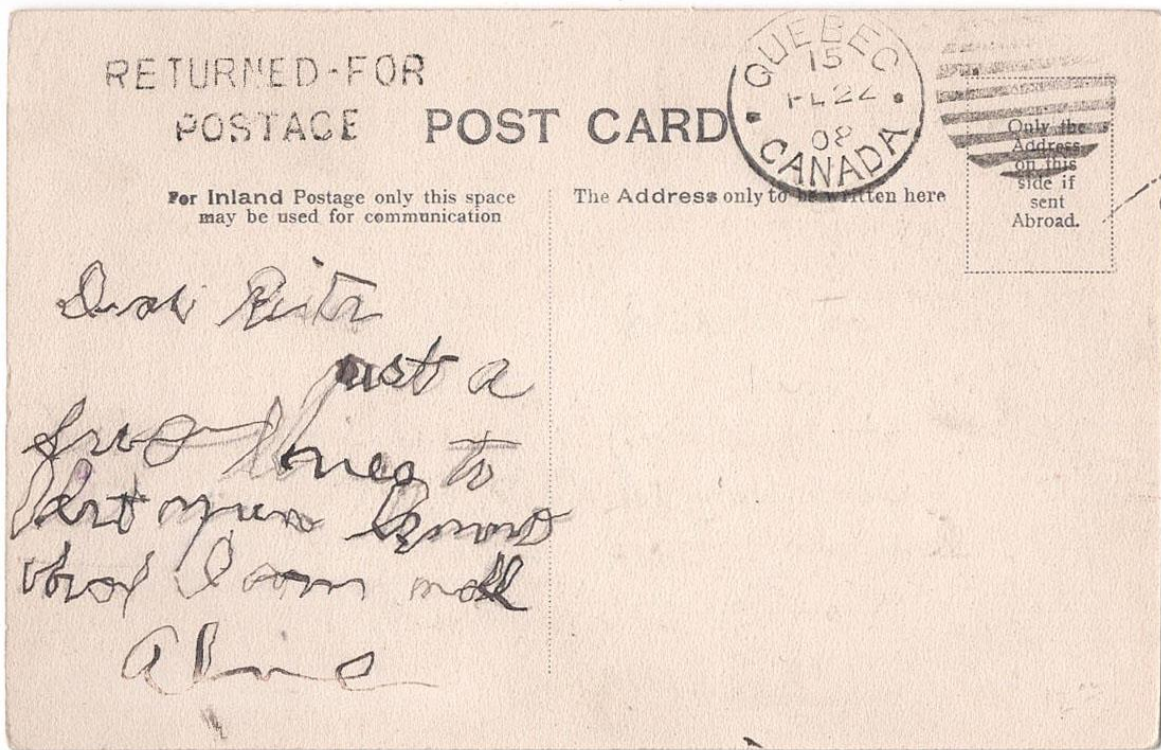 RETURNED-FOR
POSTAGE
POST CARD
QUEBEC
15
FE 22
08
CANADA
Only the
Address
on this
side if
sent
Abroad.
For Inland Postage only this space
may be used for communication
The Address only to be written here
Dear Rita
just a
few lines to
let you know
that I am well
Aline